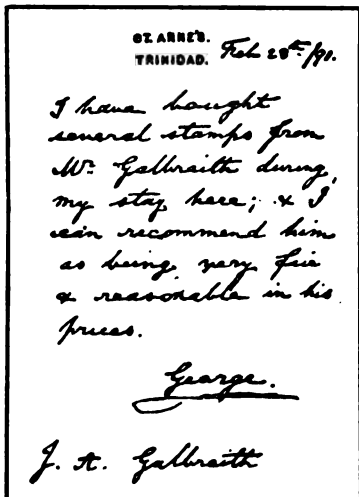 ST. ANNE'S.
TRINIDAD.
Feb 28th/91.
I have bought
several stamps from
Mr. Galbraith during
my stay here; & I
can recommend him
as being very
& reasonable in his
prices.
George.
J. A. Galbraith